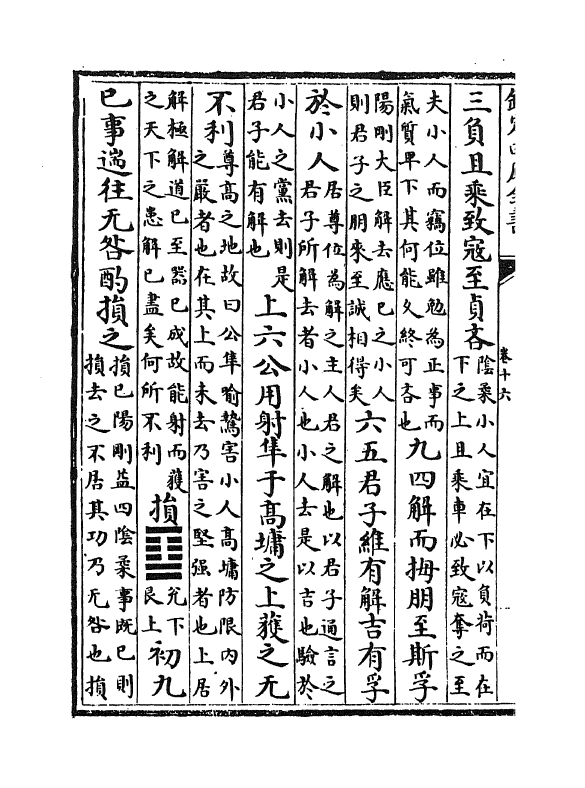 卷十六
三負且乘致寇至貞吝
陰柔小人宜在下以負荷而在
下之上且乘車必致寇奪之至
夫小人而竊位雖勉為正事而
氣質卑下其何能久終可吝也
九四解而拇朋至斯孚
陽剛大臣解去應已之小人
則君子之朋來至誠相得矣
六五君子維有解吉有孚
於小人
居尊位為解之主人君之解也以君子通言之
君子所解去者小人也小人去是以吉也驗於
小人之黨去則是
君子能有解也
上六公用射隼于髙墉之上獲之无
不利
尊髙之地故曰公隼喻鷙害小人髙墉防限内外
之嚴者也在其上而未去乃害之堅强者也上居
解極解道已至器已成故能射而獲
之天下之患解已盡矣何所不利
損䷨
兊下
艮上
初九
已事遄往无咎酌損之
損已陽剛益四陰柔事既已則
損去之不居其功乃无咎也損